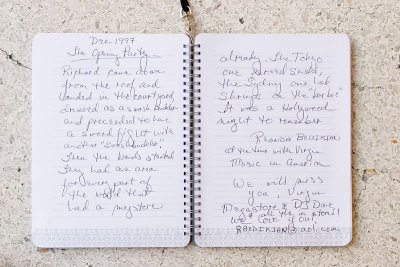 Dec 1997
The Opening Party
Richard came down
from the roof and
landed in the courtyard,
dressed as a swash buckler
and proceeded to have
a sword fight with
another "swashbuckler".
Then the bands started
They had an area
for every part of
the world that
had a megastore
already. The Tokyo
one served sushi,
the Sydney one had
Shrimp on the "barbie"
It was a Hollywood
night to remember
Rhonda Bedikian
at the time with Virgin
Music in
We will miss
you, Virgin
Megastore & DJ Dave
& all the in store!
We love you!
RBedikian@aol.com